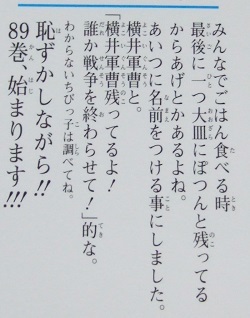 みんなでごはん食べる時
最後に一つ大皿にぽつんと残ってる
からあげとかあるよね。
あいつに名前をつける事にしました。
横井軍曹と。
「横井軍曹残ってるよ！
誰か戦争を終わらせて！」的な。
わからないちびっ子は調べてね。
恥ずかしながら!!
89巻、始まります!!!